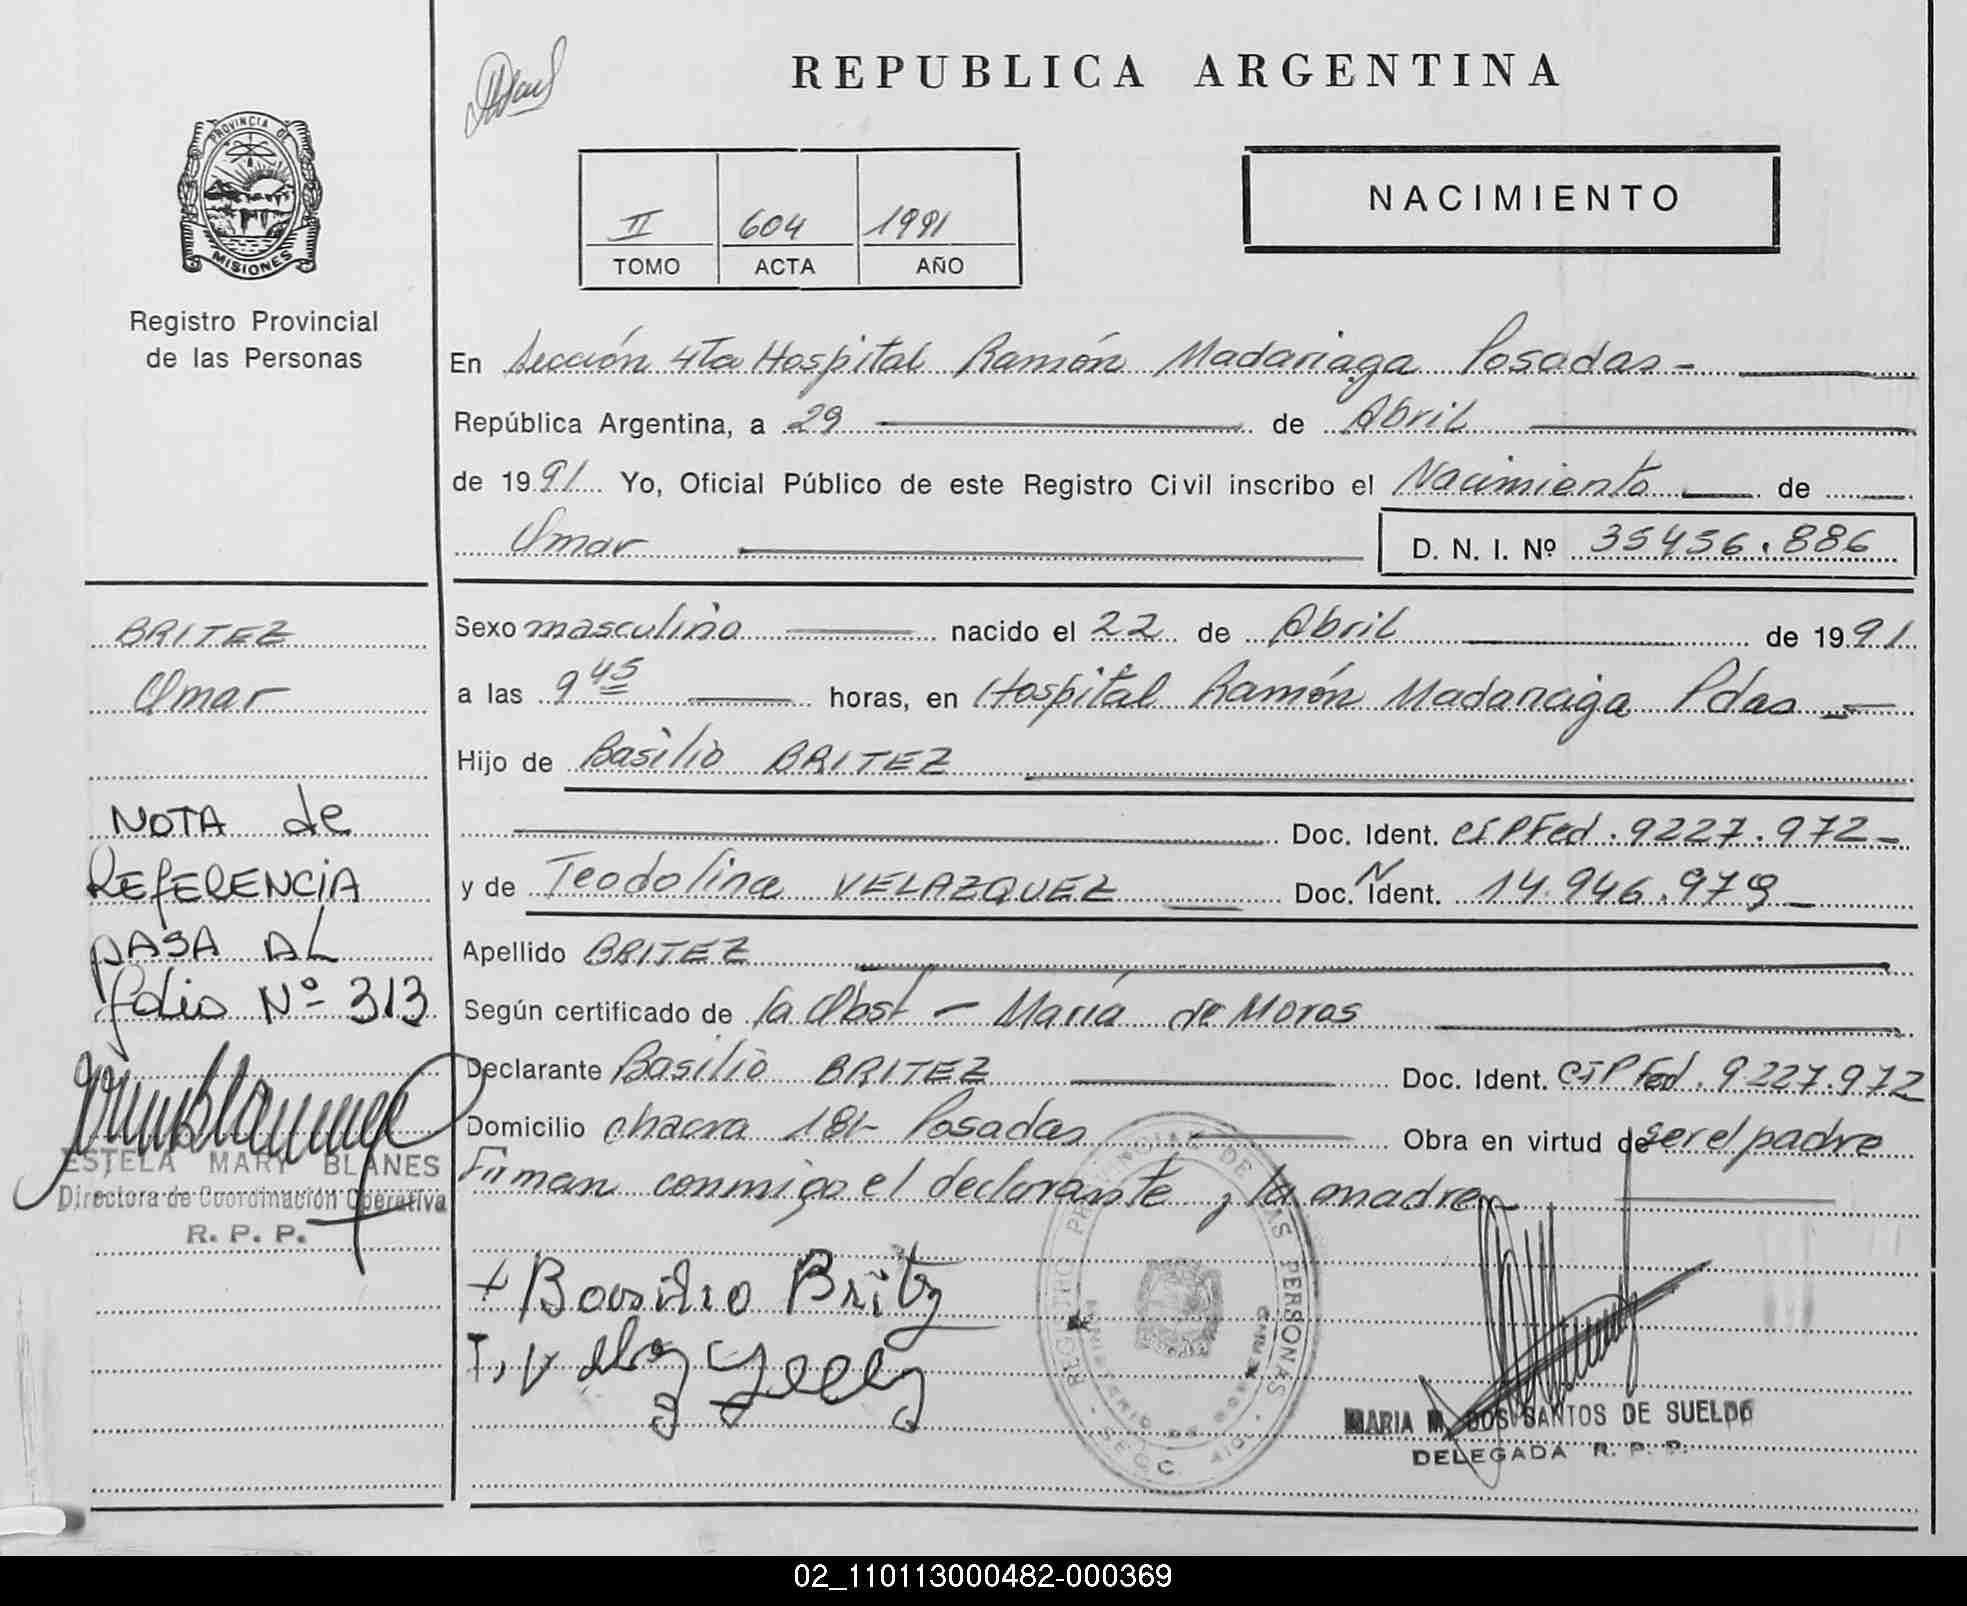 REPUBLICA ARGENTINA
PROVINCIA DE
MISIONES
Registro Provincial
de las Personas
II 604 1991
TOMO ACTA AÑO
NACIMIENTO
En Sección 4Ta Hospital Ramón Madariaga Posadas -
República Argentina, a 29 de Abril
de 1991 Yo, Oficial Público de este Registro Civil inscribo el Nacimiento de
Omar D. N. I. Nº 35456.886
BRITEZ
Omar
NOTA de
REFERENCIA
PASA AL
folio Nº 313
ESTELA MARY BLANES
Directora de Coordinación Operativa
R. P. P.
Sexo masculino nacido el 22 de Abril de 1991
a las 9 45 horas, en Hospital Ramón Madariaga Pdas -
Hijo de Basilio BRITEZ
Doc. Ident. CIPFed. 9227.972-
y de Teodolina VELAZQUEZ Doc. N Ident. 14.946.979-
Apellido BRITEZ
Según certificado de la Obst - María de Moras
Declarante Basilio BRITEZ Doc. Ident. CIPFed. 9227.972
Domicilio chacra 181- Posadas Obra en virtud de ser el padre
Firman conmigo el declarante y la madre-
+ Basilio Britz
REGISTRO PROVINCIAL DE LAS PERSONAS
MARIA M. DOS SANTOS DE SUELDO
DELEGADA R. P. P.
02_110113000482-000369